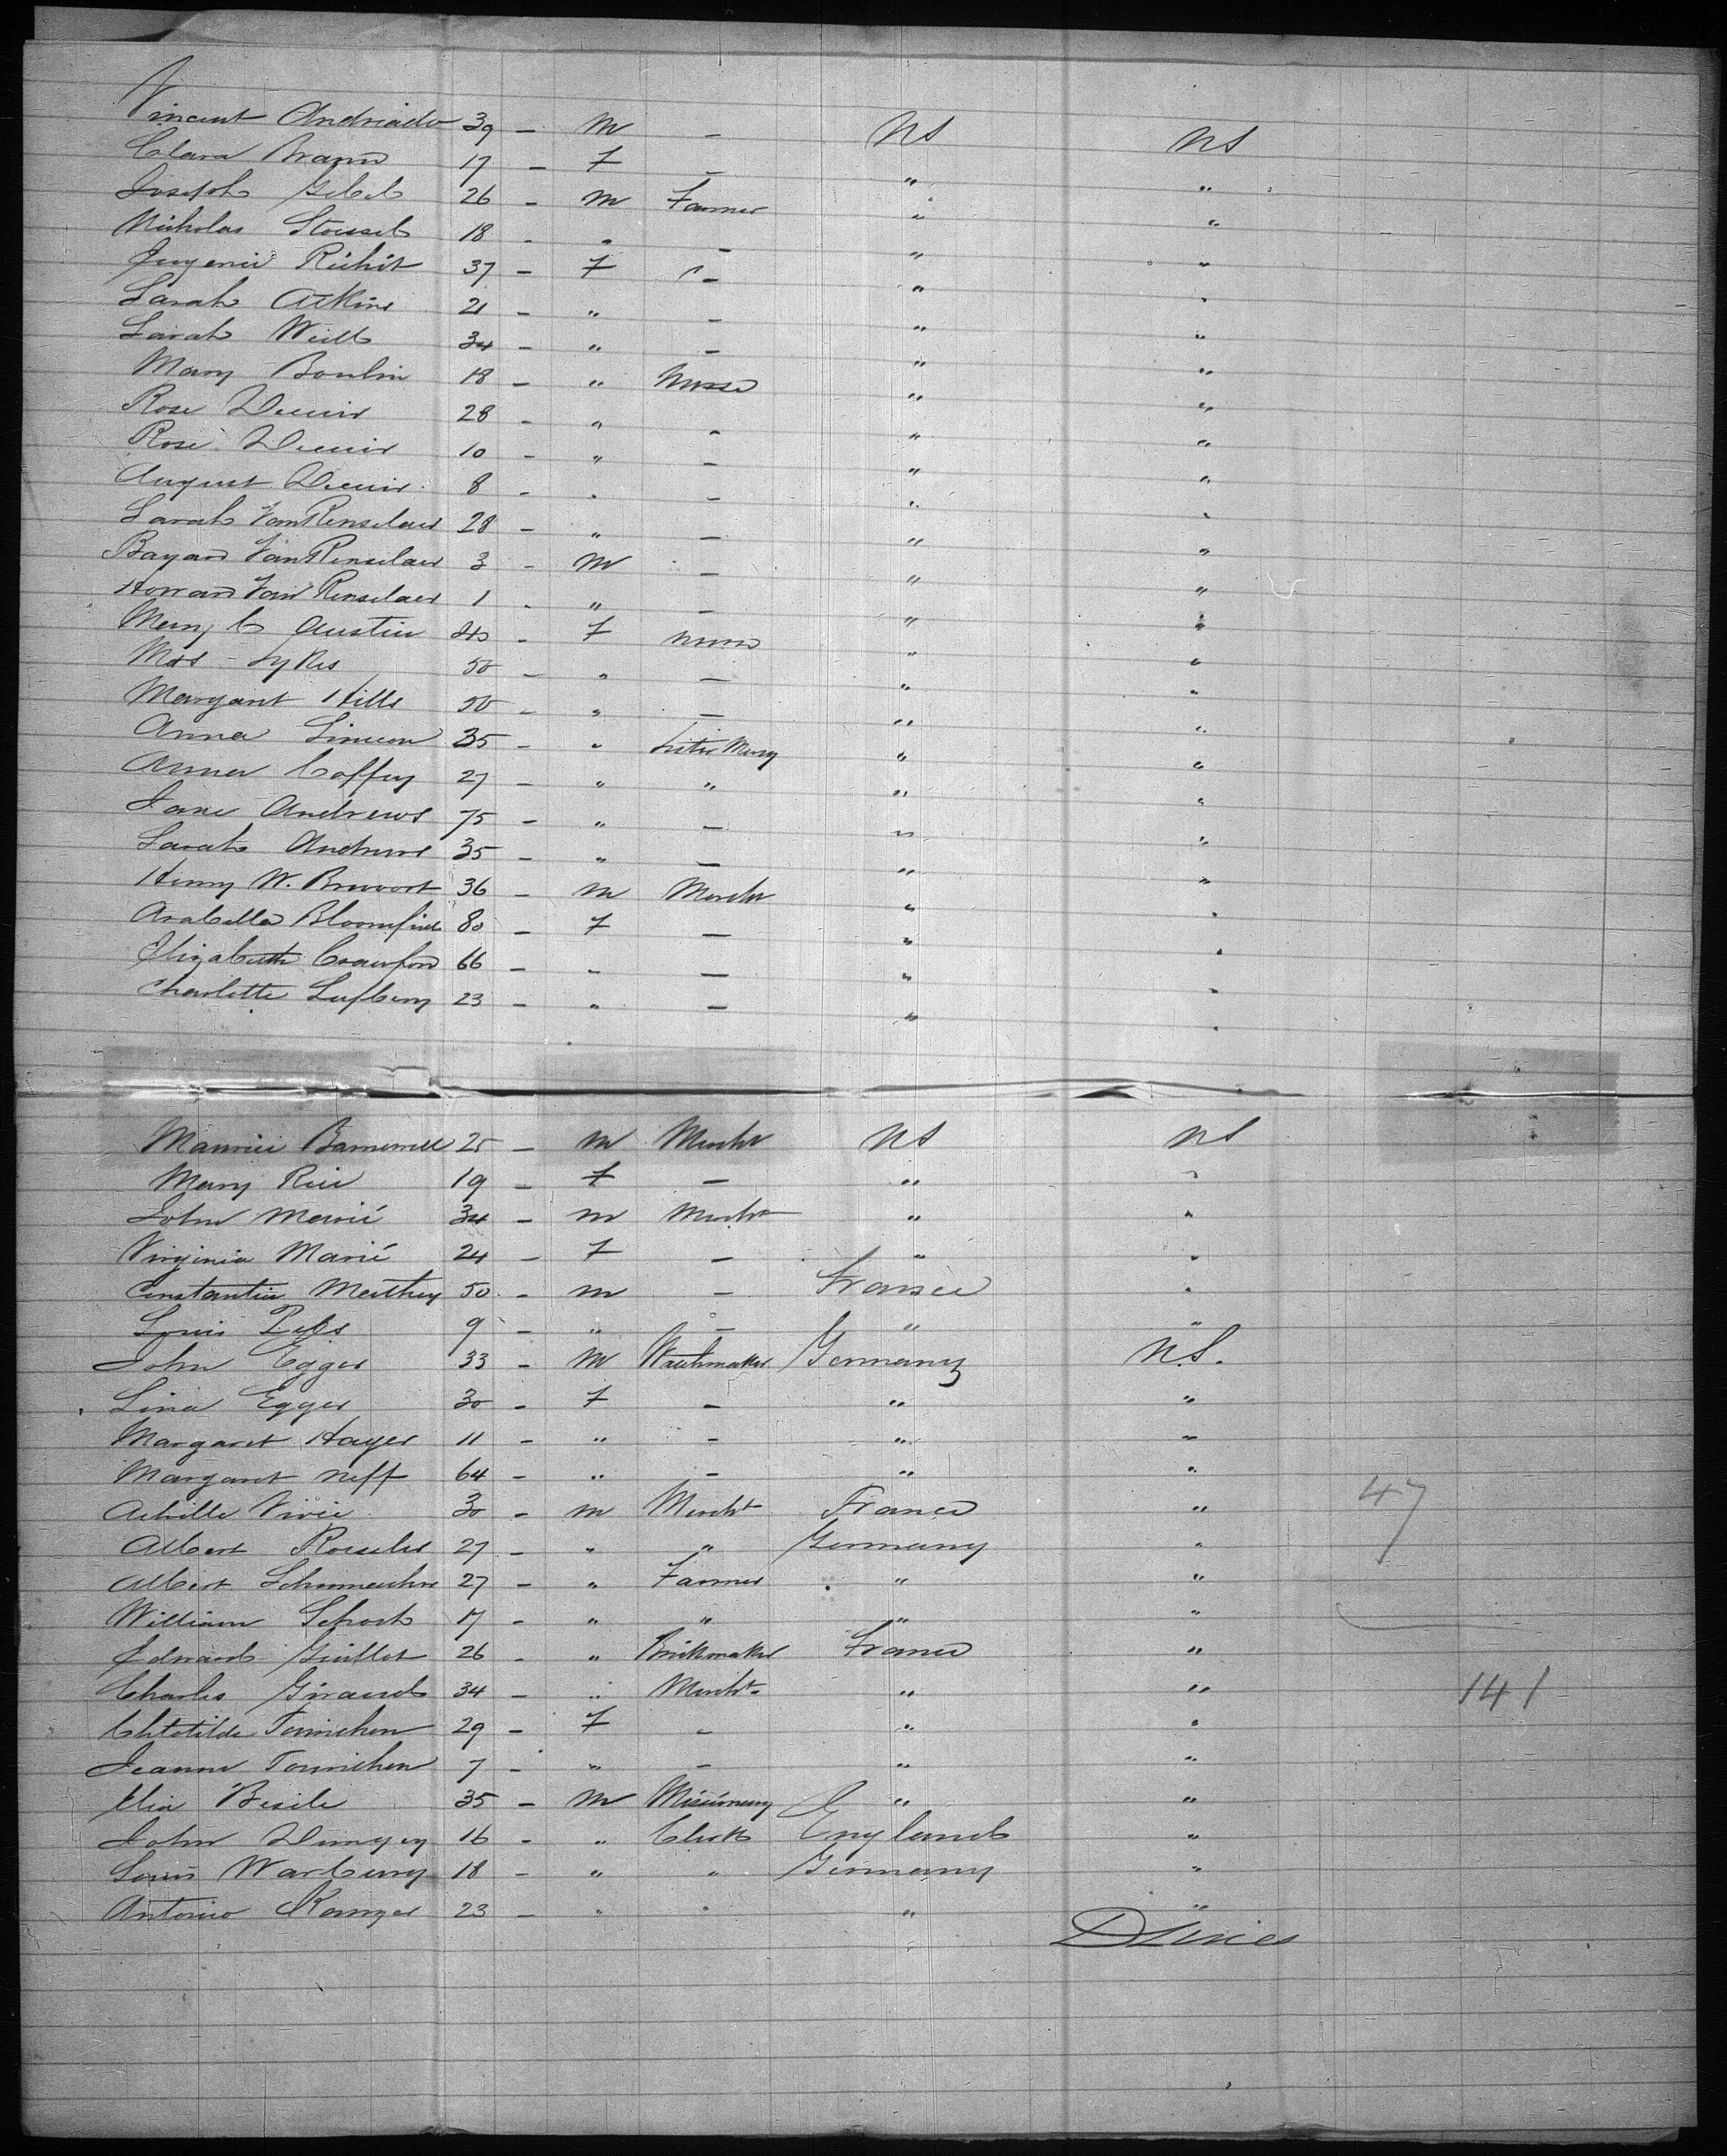 Vincent Andriado 39 - M - US US
Clara Braun 17 - F - " "
Joseph Gibel 26 - M Farmer " "
Nicholas Stoissel 18 - " - " "
Eugenie Richit 37 - F - " "
Sarah Atkins 21 - " - " "
Sarah Weill 34 - " - " "
Mary Boulin 18 - " Nurse " "
Rose Decuir 28 - " - " "
Rose Decuir 10 - " - " "
August Decuir 8 - " - " "
Sarah VanRenselaer 28 - " - " "
Bayard VanRenselaer 3 - M - " "
Howard Van Renselaer 1 - " - " "
Mary C Austin 40 - F Nurse " "
Mrs - Sykes 50 - " - " "
Margaret Hills 50 - " - " "
Anna Simeon 35 - " Sister Mercy " "
Anna Coffey 27 - " " " "
Jane Andrews 75 - " - " "
Sarah Andrews 35 - " - " "
Henry W. Brevoort 36 - M Mercht " "
Arabella Bloomfield 80 - F - " "
Elizabeth Crawford 66 - " - " "
Charlotte Lufbery 23 - " - " "
Maurice 25 - M Mercht US US
Mary Rice 19 - F - " "
John Marié 34 - M Mercht " "
Virginia Marié 24 - F - " "
Constantin Meithey 50 - M - France "
Louis 9 - " - " "
John Egger 33 - M Watchmaker Germany U.S.
Lina Egger 30 - F - " "
Margaret Hayer 11 - " - " "
Margaret Neff 64 - " - " "
Achille Vivie 30 - M Mercht France "
Albert Roesler 27 - " " Germany "
Albert 27 - " Farmer " "
William Schork 17 - " " " "
Edward Guillot 26 - " Brickmaker France "
Charles Giraud 34 - " Mercht " "
Chlotilde Tournichon 29 - F - " "
Jeanne Tournichon 7 - " - " "
Elia Besile 35 - M Missionary " "
John Dungey 16 - " Clerk England "
Louis Warburg 18 - " " Germany "
Antonio Ranger 23 - " " " "
47
141